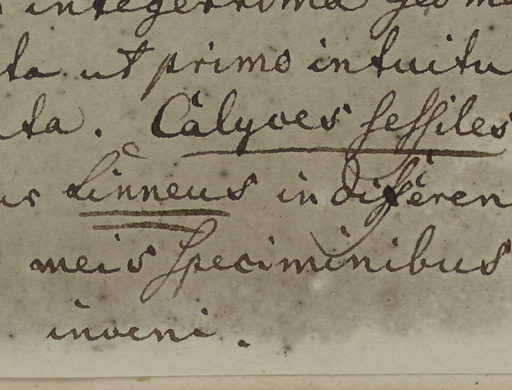 integerrima
ta ut primo intuitu
ta. Calyces sessiles
Linneus indifferen
meis speciminibus
inveni.